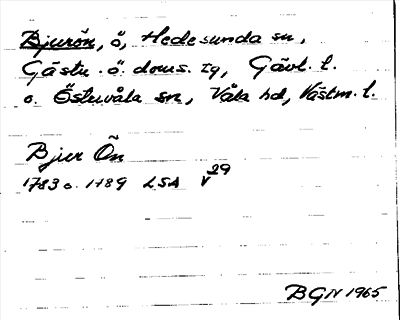 Bjurön, ö, Hedesunda sn,
Gästr. ö. doms. tg, Gävl. l.
o. Östervåla sn, Våla hd, Västm. l.
Bjur Ön
1783 o. 1789 LSA V29
BGN 1965